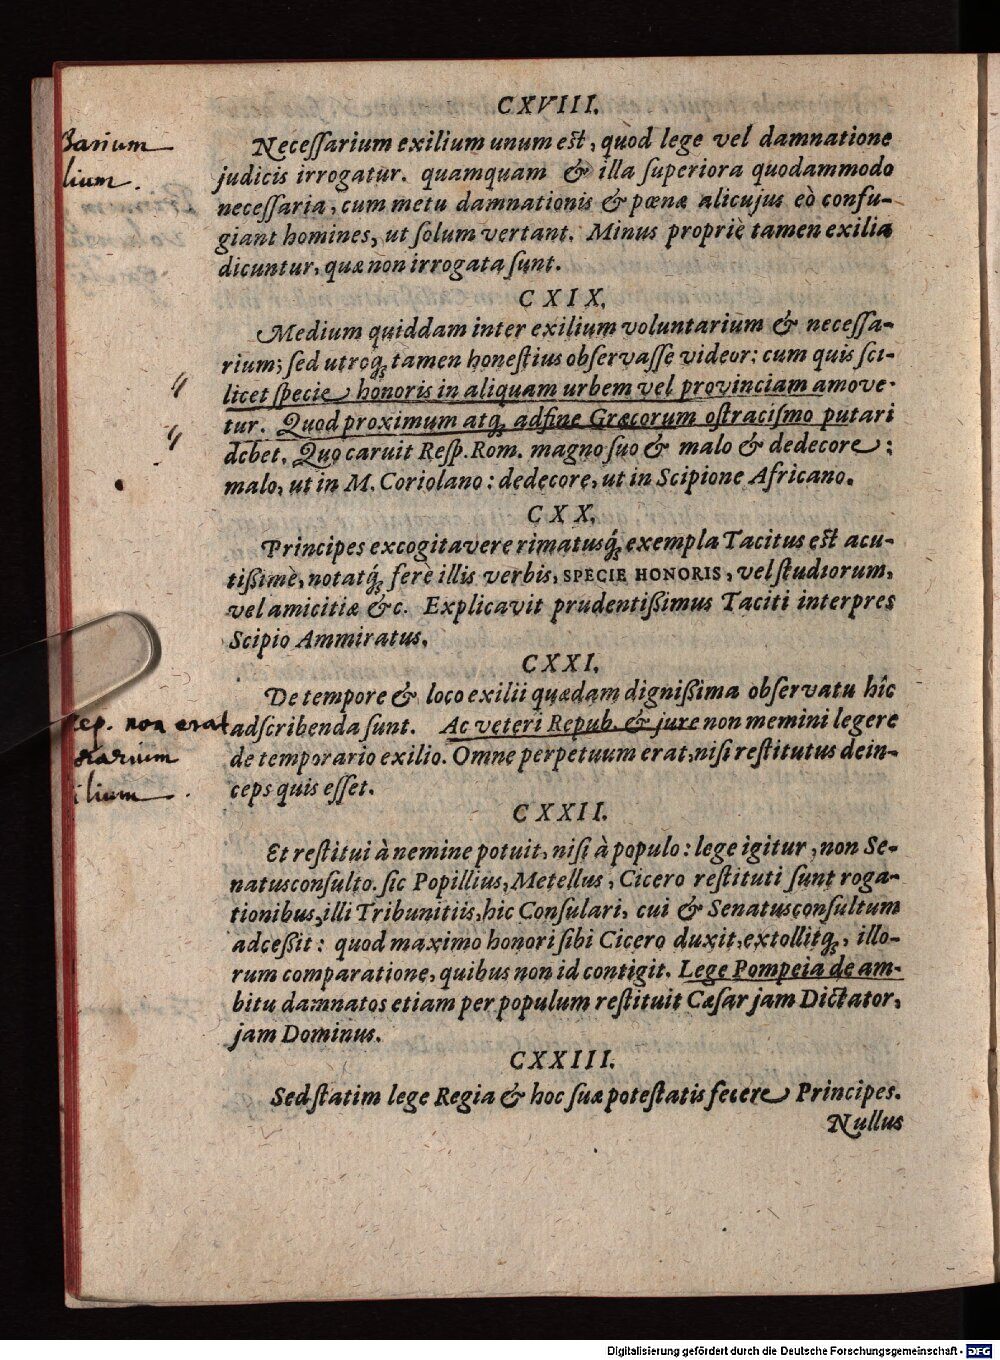 CXVIII.
Neceſſarium exilium unum est, quod lege vel damnatione
judicis irrogatur. quamquam & illa ſuperiora quodammodo
neceſſaria, cum metu damnationis & pœnæ alicujus eò confu-
giant homines, ut ſolum vertant. Minus propriè tamen exilia
dicuntur, quæ non irrogata ſunt.
sarium
lium.
CXIX.
Medium quiddam inter exilium voluntarium & neceſſa-
rium; ſed utroq; tamen honeſtius obſervaſſe videor: cum quis ſci-
licet ſpecie honoris in aliquam urbem vel provinciam amove-
tur. Quod proximum atq; adfine Græcorum oſtraciſmo putari
debet. Quo caruit Reſp. Rom. magno ſuo & malo & dedecore:
malo, ut in M. Coriolano: dedecore, ut in Scipione Africano.
CXX.
Principes excogitavere rimatusq́; exempla Tacitus est acu-
tißimè, notatq́; ferè illis verbis, SPECIE HONORIS, vel ſtudiorum,
vel amicitiæ &c. Explicavit prudentißimus Taciti interpres
Scipio Ammiratus.
CXXI.
De tempore & loco exilii quædam dignißima obſervatu hîc
adſcribenda ſunt. Ac veteri Repub. & jure non memini legere
de temporario exilio. Omne perpetuum erat, niſi reſtitutus dein-
ceps quis eſſet.
ep. non erat
rarium
ilium
CXXII.
Et reſtitui à nemine potuit, niſi à populo: lege igitur, non Se-
natusconſulto. ſic Popillius, Metellus, Cicero reſtituti ſunt roga-
tionibus, illi Tribunitiis, hic Conſulari, cui & Senatusconſultum
adceßit: quod maximo honori ſibi Cicero duxit, extollitq;, illo-
rum comparatione, quibus non id contigit. Lege Pompeia de am-
bitu damnatos etiam per populum reſtituit Cæſar jam Dictator,
jam Dominus.
CXXIII.
Sed ſtatim lege Regia & hoc ſuæ poteſtatis fecere Principes.
Nullus
Digitalisierung gefördert durch die Deutsche Forschungsgemeinschaft - DFG